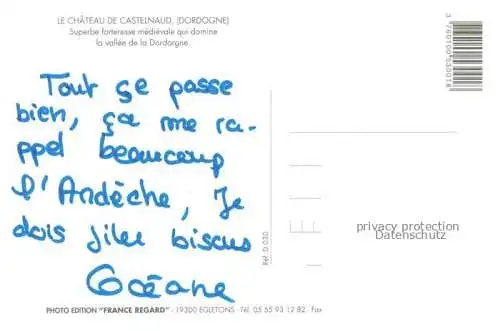 LE CHÂTEAU DE CASTELNAUD, (DORDOGNE)
Superbe forteresse médiévale qui domine
la vallée de la Dordogne
3 760100 530018
Tout se passe
bien, ça me ra-
ppel beaucoup
l'Ardèche, Je
dois filer bisous
Océane
Réf. D 030
privacy protection
Datenschutz
PHOTO EDITION "FRANCE REGARD" - 19300 EGLETONS - Tél. 05 55 93 12 82 Fax